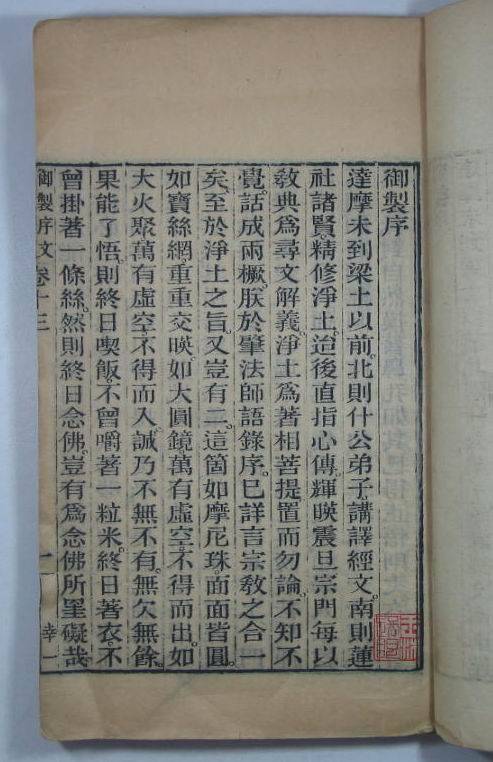 御製序
達摩未到梁土以前。北則什公弟子。講譯經文。南則蓮
社諸賢。精修淨土。迨後直指心傳。輝暎震旦。宗門每以
敎典爲尋文解義。淨土爲著相菩提。置而勿論。不知不
覺。話成兩橛。朕於肇法師語錄序。已詳言宗敎之合一
矣。至於淨土之旨。又豈有二。這箇如摩尼珠。面面皆圓。
如寶絲網。重重交暎。如大圓鏡。萬有虛空。不得而出。如
大火聚。萬有虛空。不得而入。誠乃不無不有。無欠無餘。
果能了悟。則終日喫飯。不曾嚼著一粒米。終日著衣。不
曾掛著一條絲。然則終日念佛。豈有爲念佛所罣礙哉。
御製序文卷十三 一 幸一